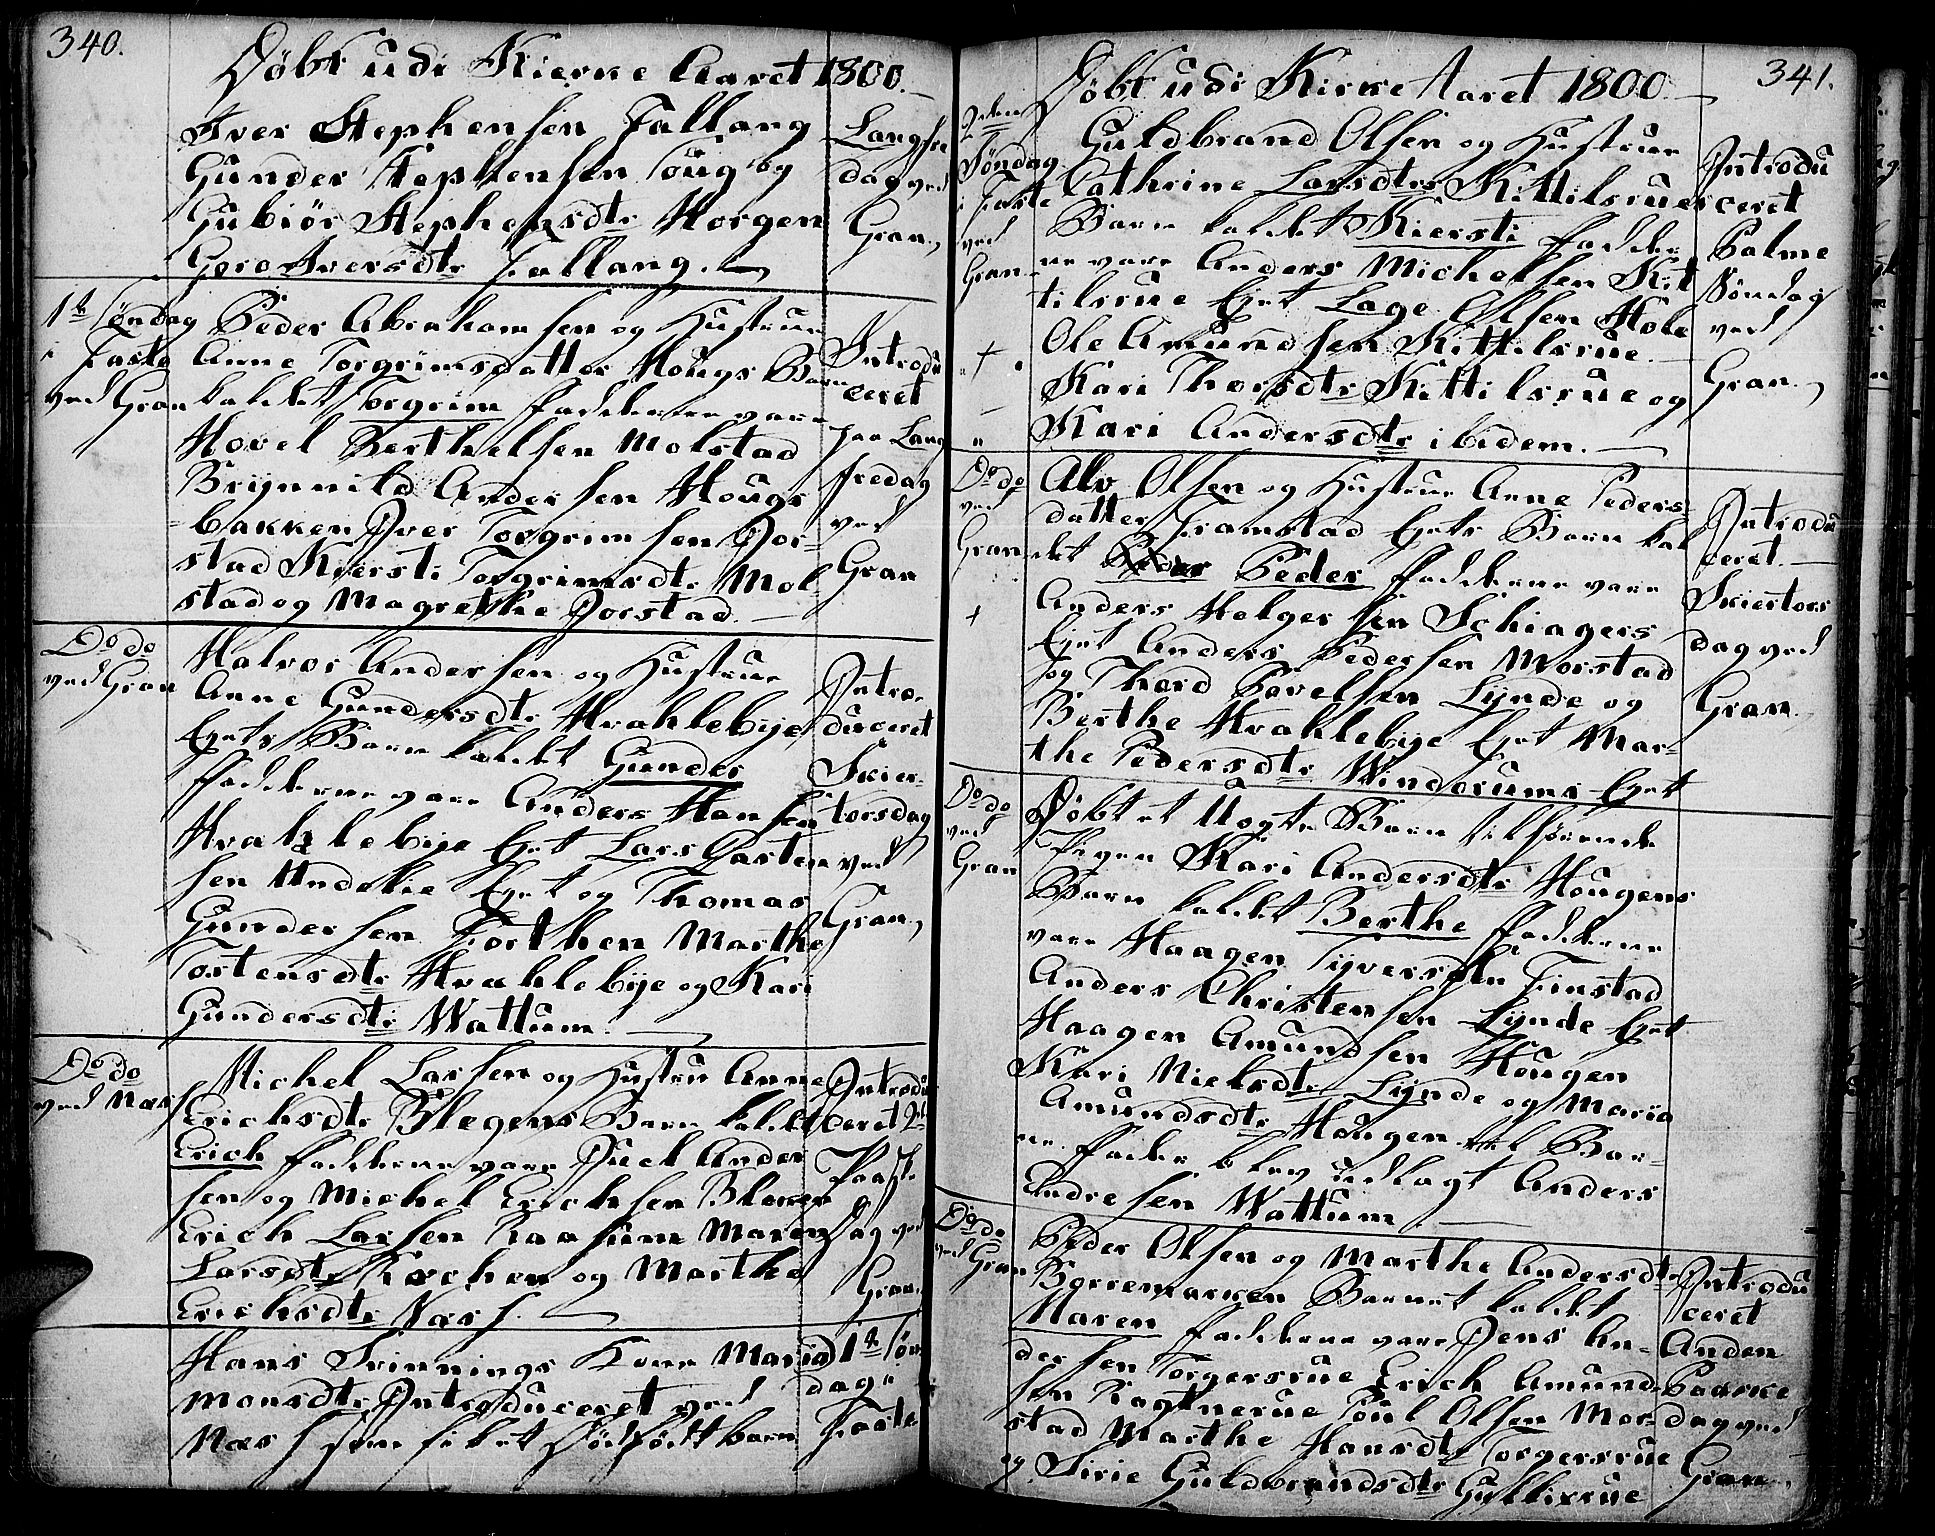 340.
Døbt udi Kierke Aaret 1800.
Iver Stephensen Fallang
Gunder Stephensen Toug og
Gubiør Stephensdtr Horgen
Goro Iversdtr Fallang.
Langfre
dag ved
Gran
1te Søndag
i Faste
ved Gran
Peder Abrahamsen og Hustrue
Anne Torgrimsdatter Hougs Barn
kaldet Torgrim Fadderne vare
Hovel Berthelsen Molstad
Brynnild Andersen Hougs
bakken Iver Torgrimsen Jor-
stad Kiersti Torgrimsdtr Mol-
stad og Magrethe Jorstad.
Introdu
ceret
paa Lang
fredag
ved
Gran
Do do
ved Gran
Halvor Andersen og Hustrue
Anne Gundersdtr Hvahlebye
Eyets Barn kaldet Gunder
Fadderne vare Anders Hansen
Hvahlebye Eyet Lars Gasten
sen Undelie Eyet og Thomas
Gundersen Forthen Marthe
Tostensdtr Hvahlebye og Kari
Gundersdtr Wattum.
Intro-
duceret
Skier-
torsdag
ved
Gran
Do do
ved Næs
Michel Larsen og Hustru Anne
Erichsdtr Blegens Barn kaldet
Erich Fadderne vare Juel Ander
sen og Michel Erichsen Blegen
Erich Larsen Raasum Maren
Larsdtr Kochen og Marthe
Erichsdtr Næs.
Introdu
ceret 2den
Paaske
Dag ved
Gran
Hans Skinnings Kone Maria
Monsdtr Introduceret ved
Næs som fik et Dødfødt barn
1te Søn
dag i
Faste
341.
Døbt udi Kirke Aaret 1800
2den
Søndag
i Faste
ved
Gran
Guldbrand Olsen og Hustrue
Cathrine Larsdtrs Kittilsrues
Barn kaldet Kiersti Fadder
ne vare Anders Michelsen Kit
tilsrue Eyet Lage Olsen Hole
Ole Amundsen Kittilsrue
Kari Thorsdtr Kittilsrue og
Kari Andersdtr ibidem.
Introdu
ceret
Palme
Søndag
ved
Gran
Do do
ved
Gran
Alv Olsen og Hustrue Anne Peders-
datter Framstad Eyets Barn kal
det Peder Fadderne vare
Anders Holgersen Schiagers
Eyet Anders Pedersen Morstad
og Thord Povelsen Lynde og
Berthe Hvahlebye Eyet Mar-
the Pedersdtr Windorums Eyet
Introdu
ceret
Skiertors
dag ved
Gran
Do do
ved
Gran
Døbt et Uægte Barn tilhørende
Pigen Kari Andersdtr Hougens
Barn kaldet Berthe Fadderne
vare Haagen Tyversøn Finstad
Anders Christensen Lynde Eyet
Haagen Amundsen Hougen
Kari Nielsdtr Lynde og Maria
Amundsdtr Hougen til Bar-
nefader blev udlagt Anders
Endresen Wattum
Do do
ved Gran
Peder Olsen og Marthe Andersdtr
Borremarken Barnet kaldet
Maren Fadderne vare Jens An-
dersen Torgersrue Erich Amund-
sen Ragtnerue Poul Olsen Mor-
stad Marthe Hansdtr Torgersrue
og Sirie Guldbrandsdtr Gullixrue
Introdu
ceret
Anden
Paaske
dag ved
Gran